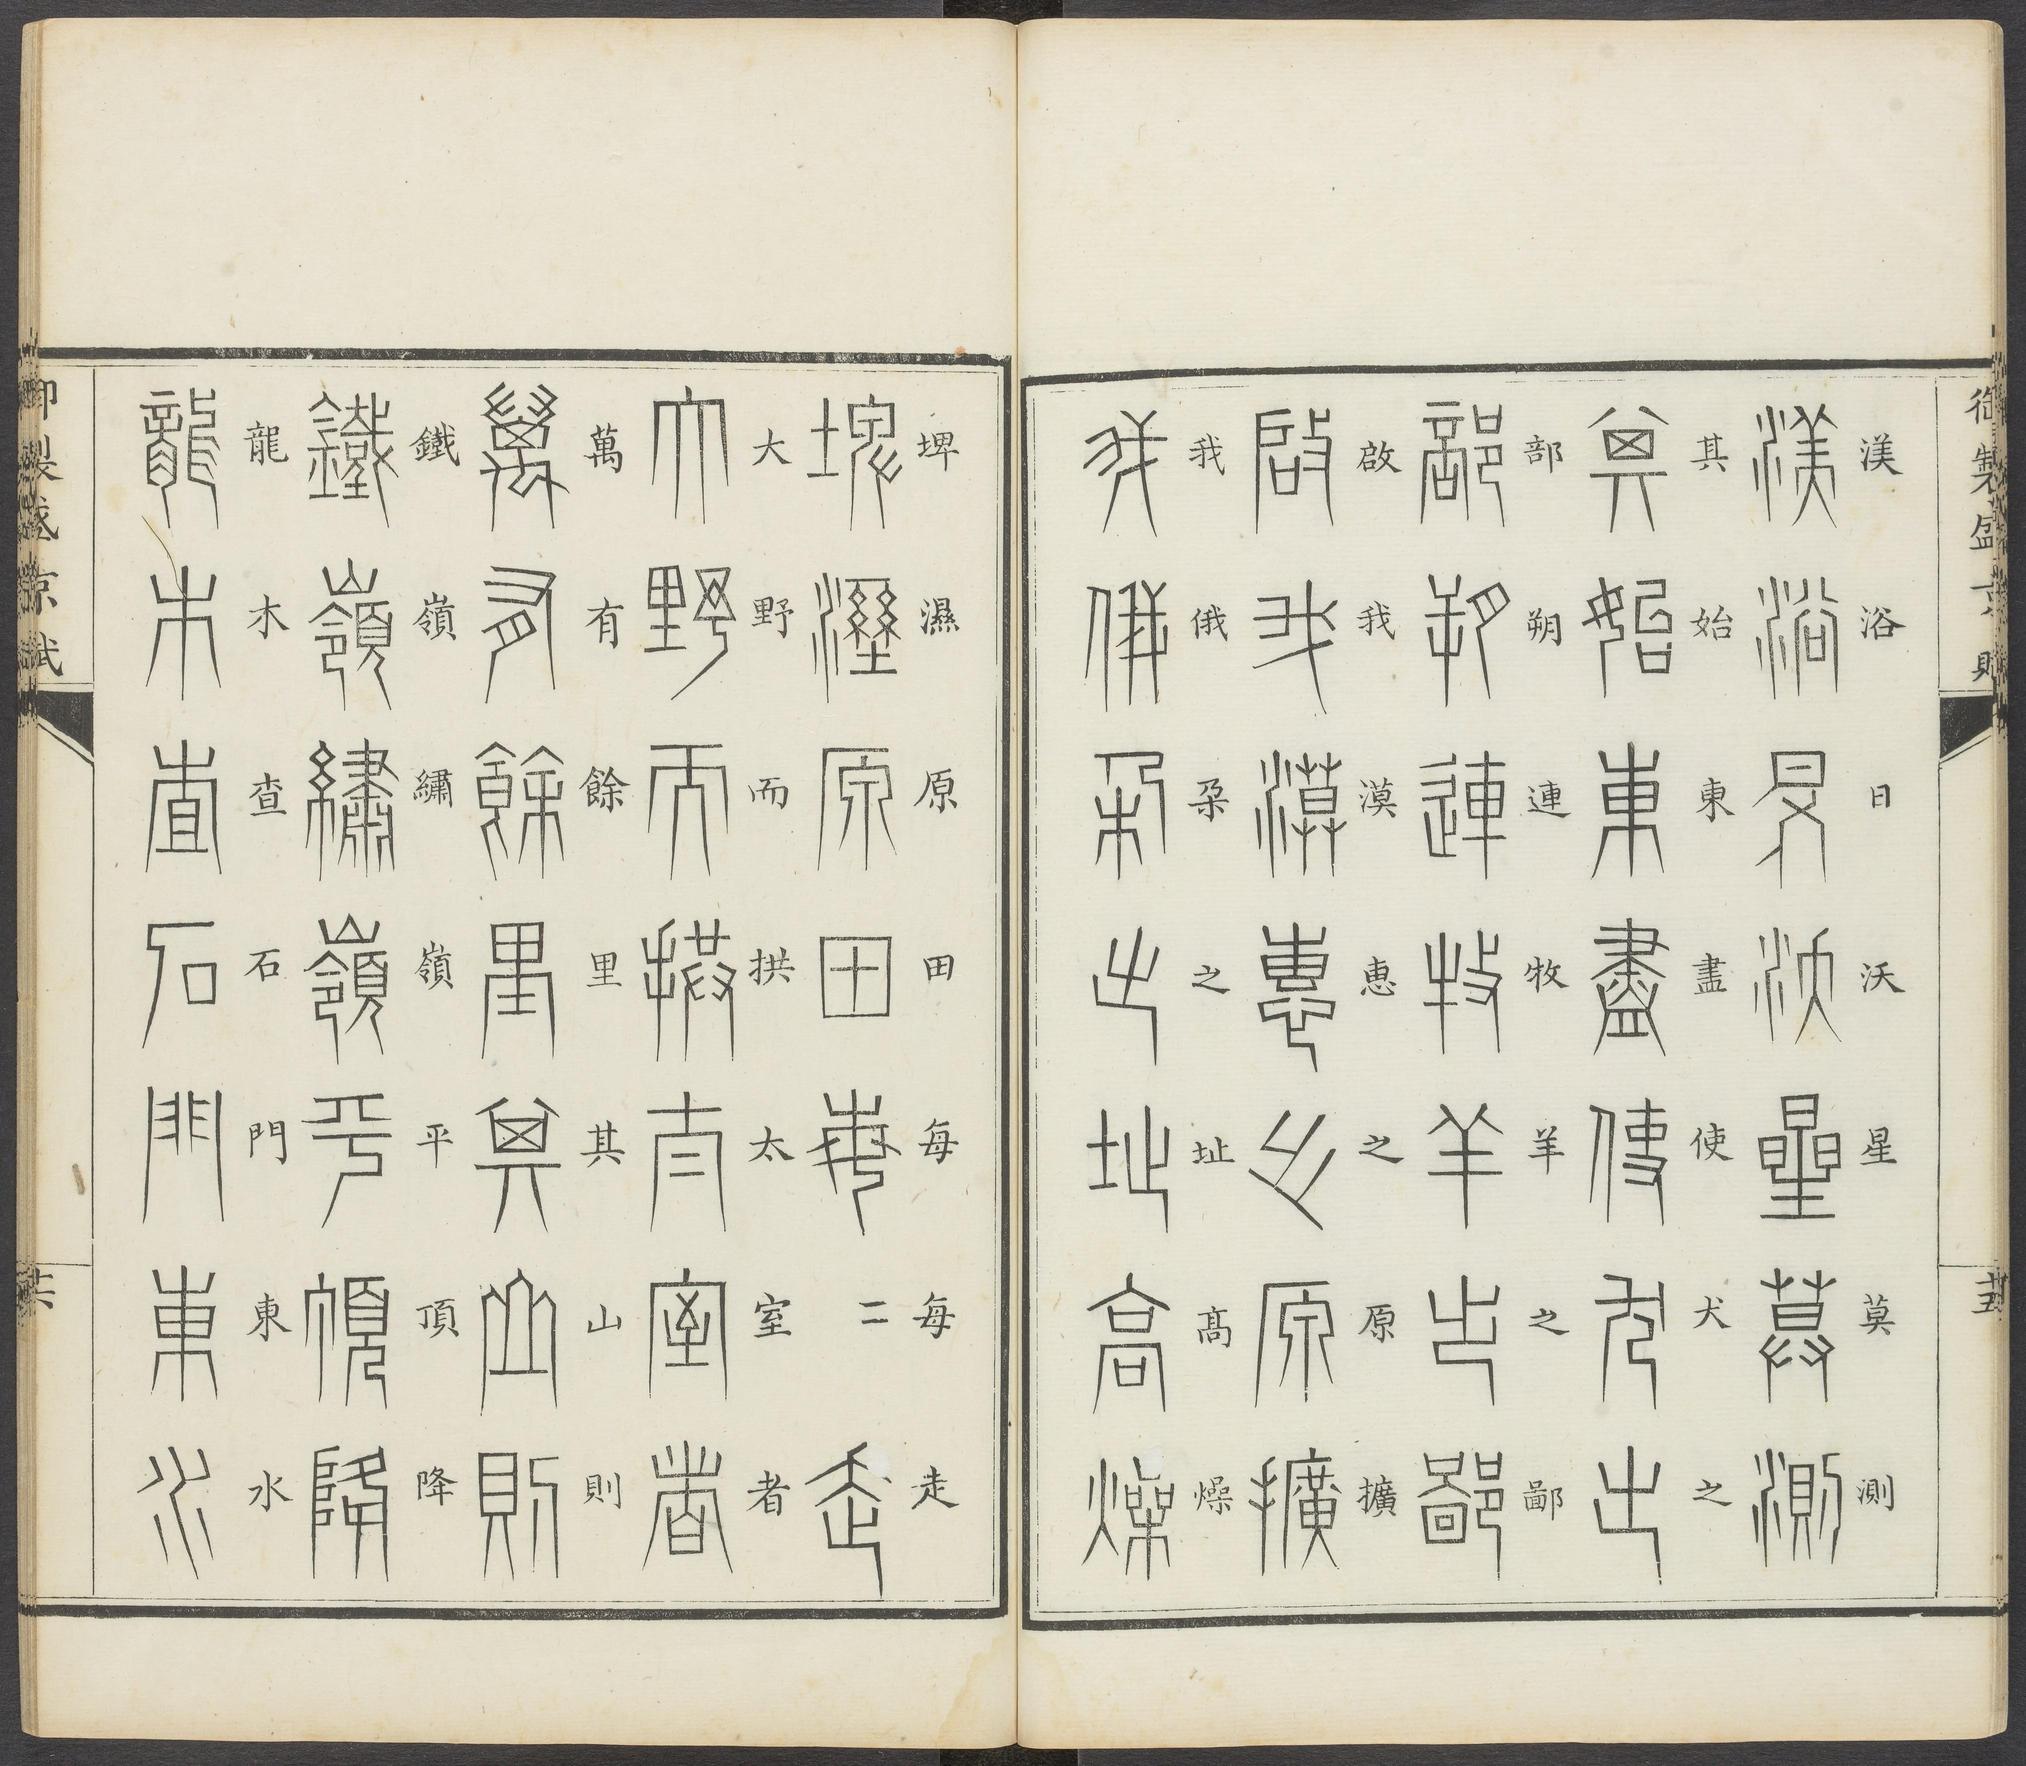 渼浴日沃星莫測
其始東盡使犬之
部朔連牧羊之鄙
啟我漠惠之原擴
我俄朶之址高燥
埤濕原田每每走
大野而拱太室者
萬有餘里其山則
鐵嶺繡嶺平頂降
龍木查石門東水
御製盛京賦